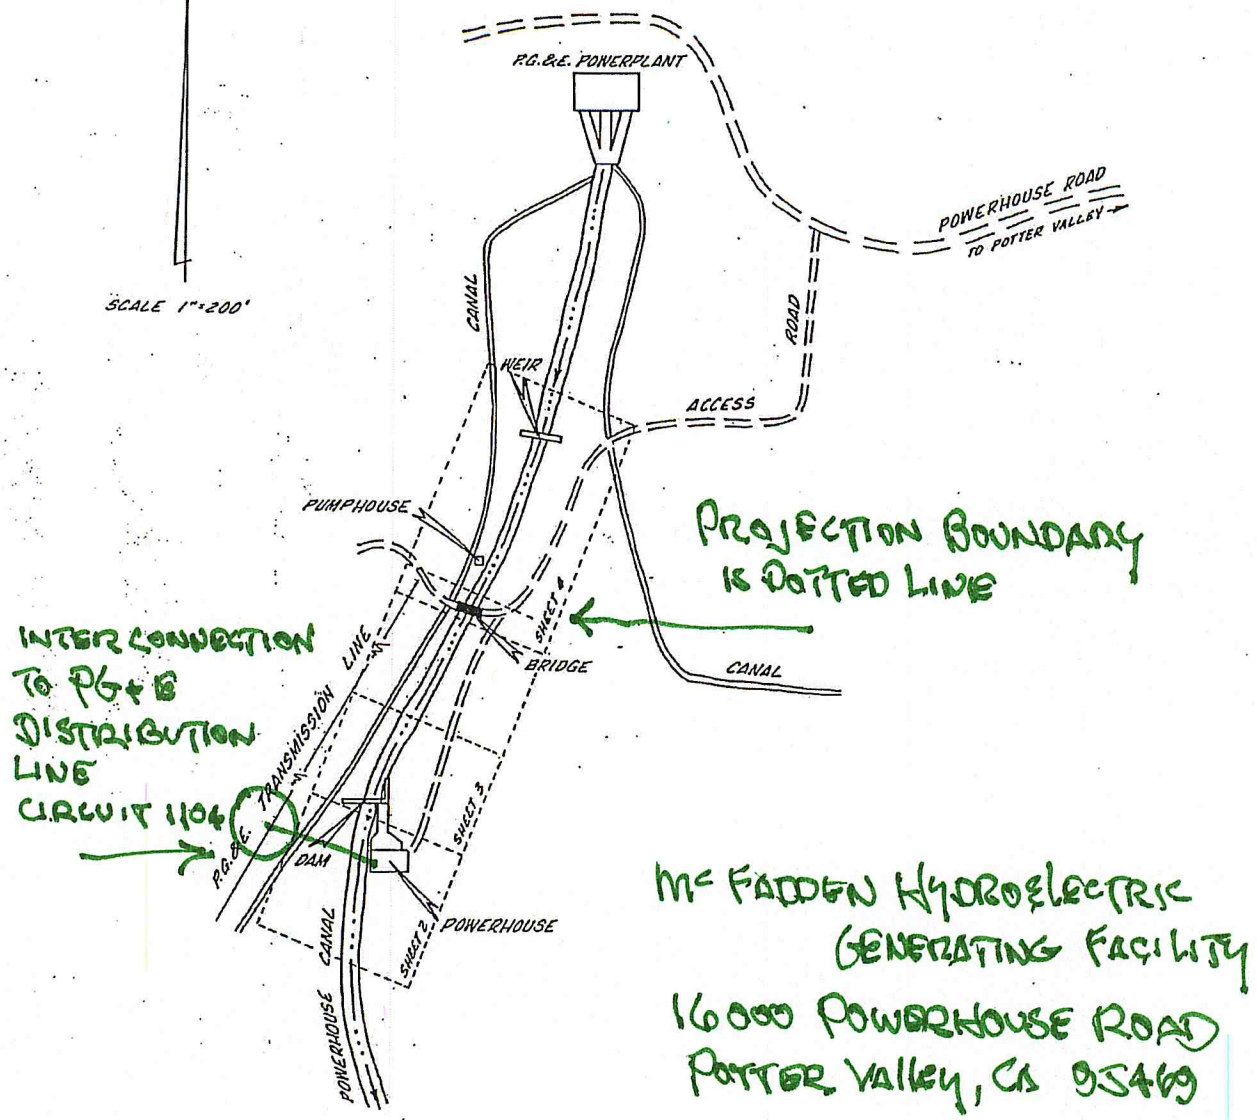 P.G.&E. POWERPLANT
POWERHOUSE ROAD
TO POTTER VALLEY
SCALE 1"=200'
CANAL
ROAD
WEIR
ACCESS
PUMPHOUSE
PROJECTION BOUNDARY
IS DOTTED LINE
SHEET 4
BRIDGE
CANAL
INTERCONNECTION
TO PG+E
DISTRIBUTION
LINE
CIRCUIT 1104
P.G.&E. TRANSMISSION LINE
SHEET 3
DAM
POWERHOUSE
SHEET 2
POWERHOUSE CANAL
Mc FADDEN HYDROELECTRIC
GENERATING FACILITY
16000 POWERHOUSE ROAD
POTTER VALLEY, CA 95469